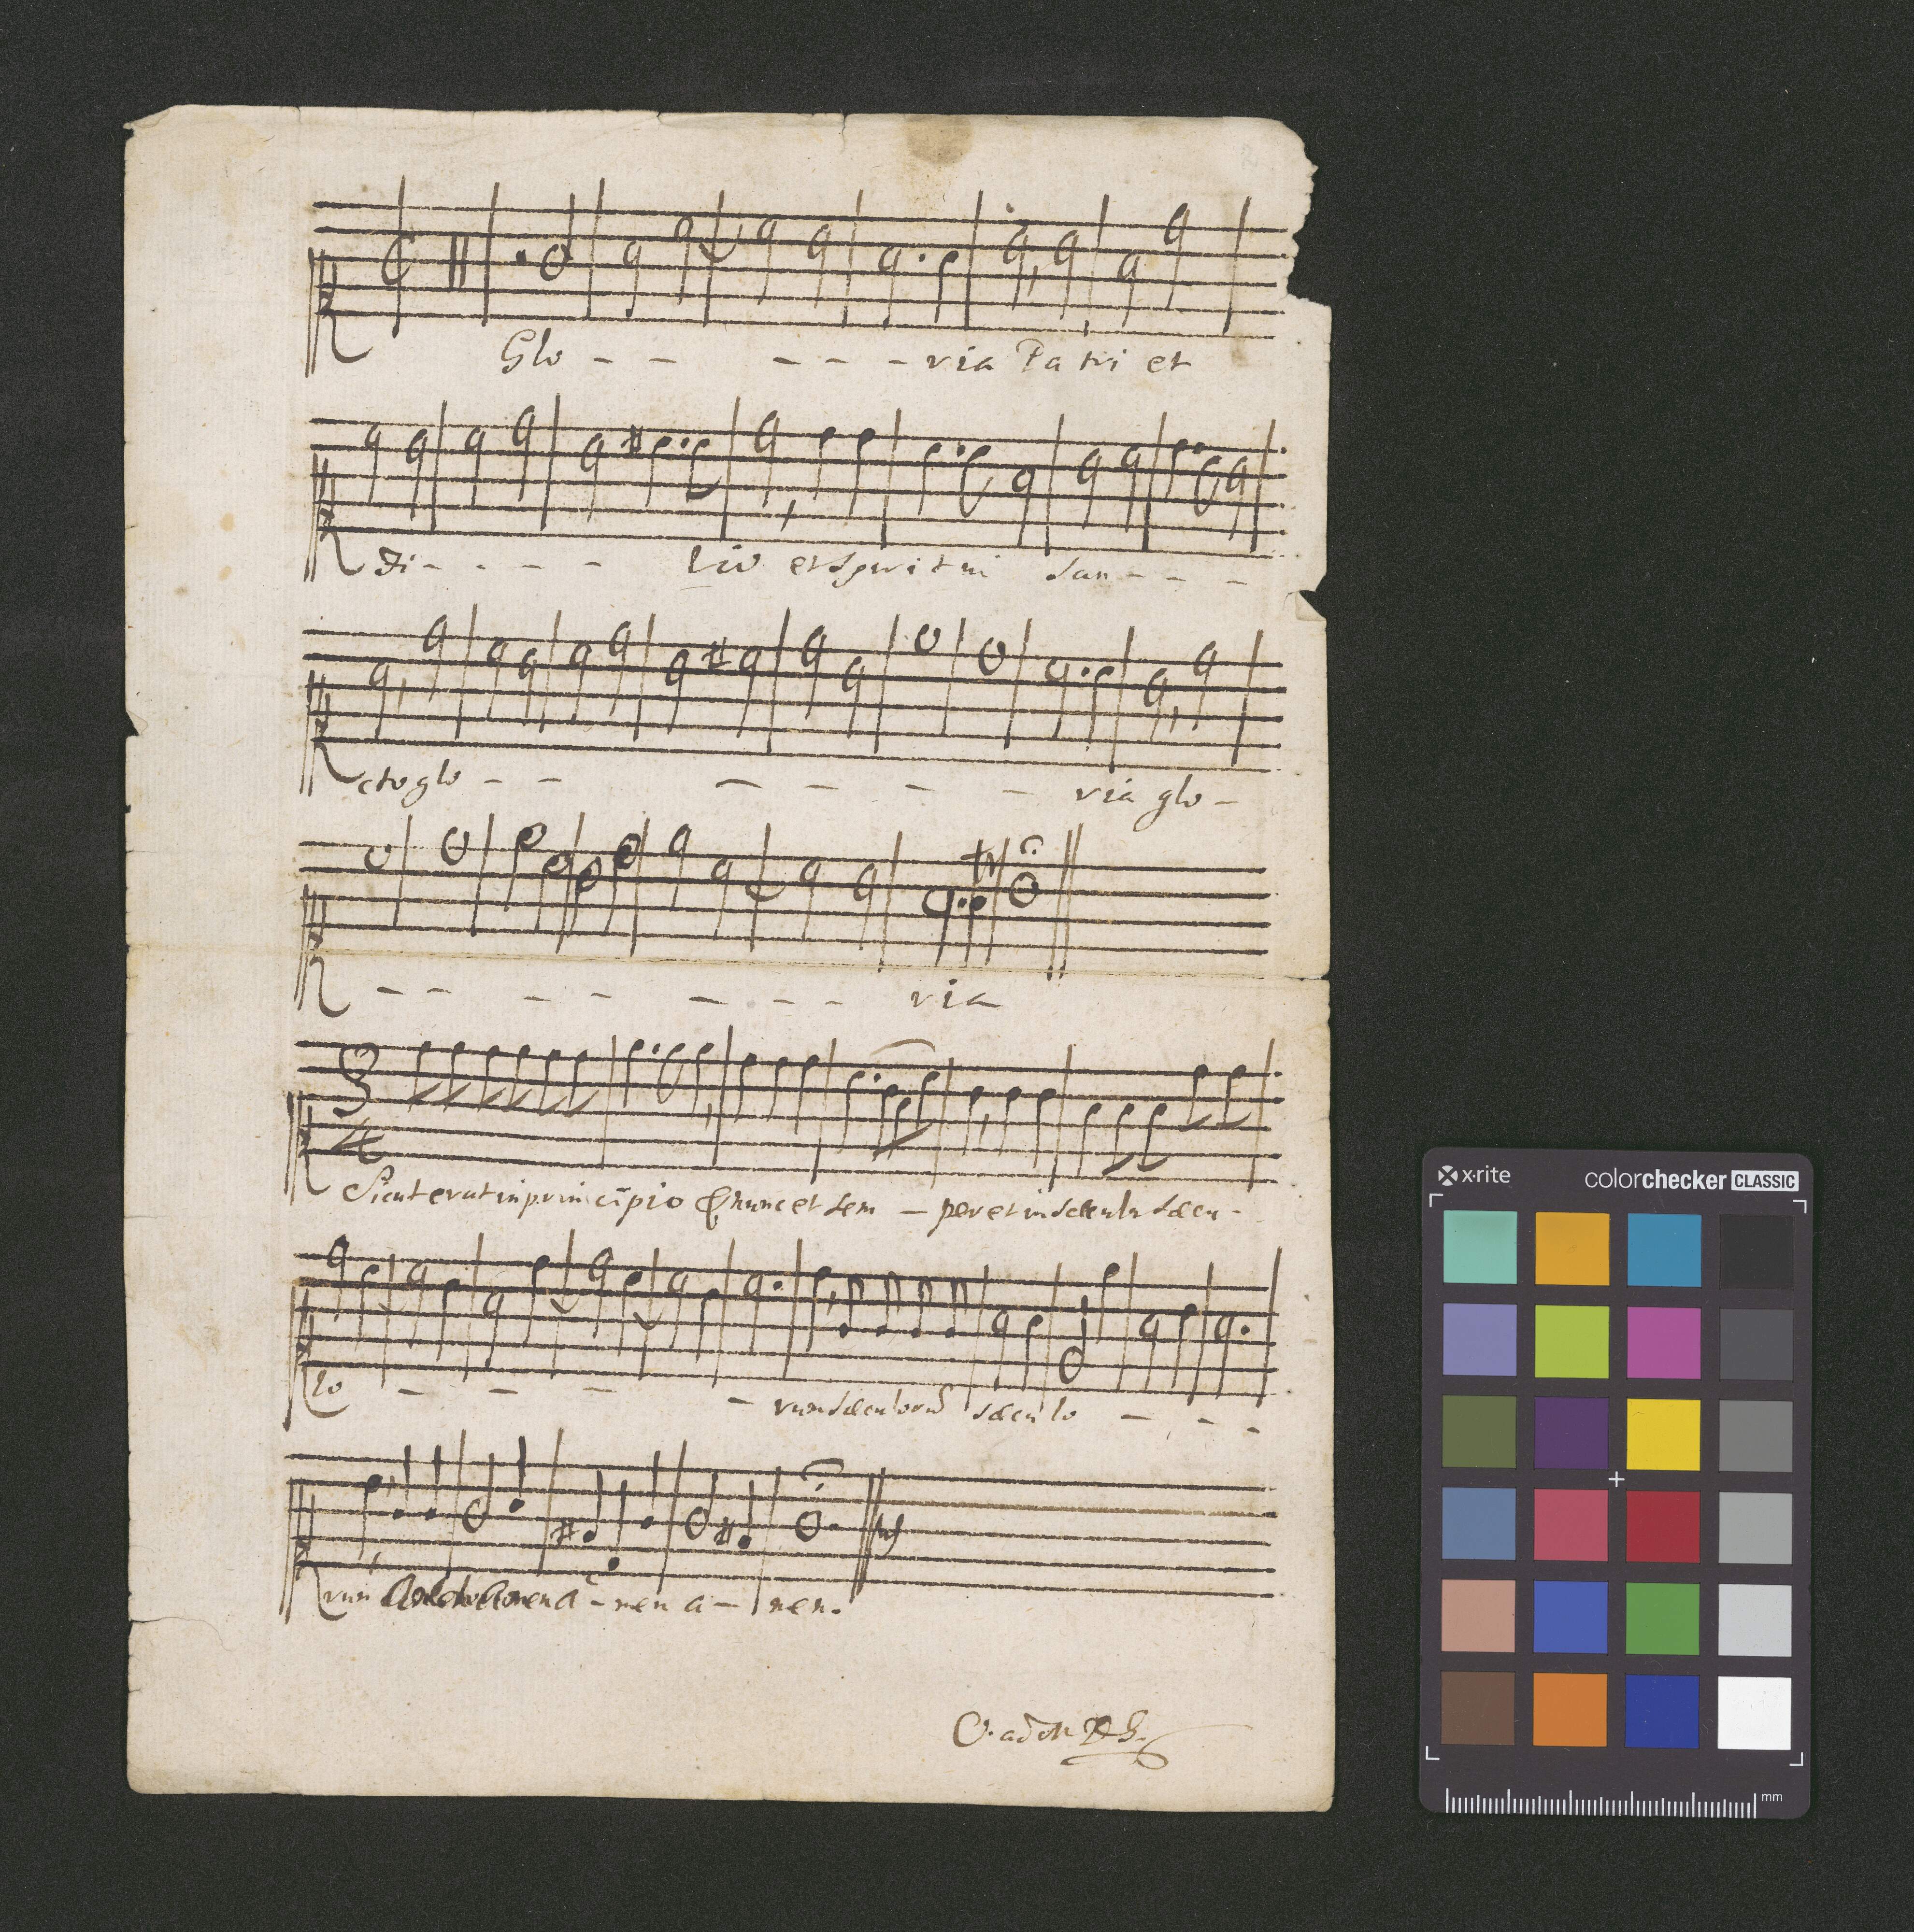 Glo - - - - - ria Patri et
Fi - - - - lio et Spiritui San - - -
cto glo - - - - - - ria glo -
- - - - - - - - ria
3
4
Sicut erat in principio & nunc et sem - per et in saecula saecu -
lo - - - - rum saeculorum saeculo - - -
rum Amen a - men a - men.
x·rite colorchecker CLASSIC
mm